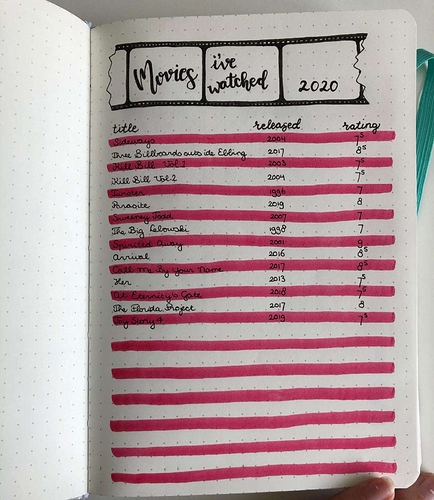 Movies i've watched 2020
title released rating
Sideways 2004 7⁵
Three Billboards outside Ebbing 2017 8⁵
Kill Bill Vol.1 2003 7⁵
Kill Bill Vol.2 2004 7⁵
Twister 1996 7
Parasite 2019 8
Sweeney Todd 2007 7
The Big Lebowski 1998 7
Spirited Away 2001 8
Arrival 2016 8⁵
Call Me By Your Name 2017 8⁵
Her 2013 7⁵
At Eternity's Gate 2018 7⁵
The Florida Project 2017 8
Toy Story 4 2019 7⁵